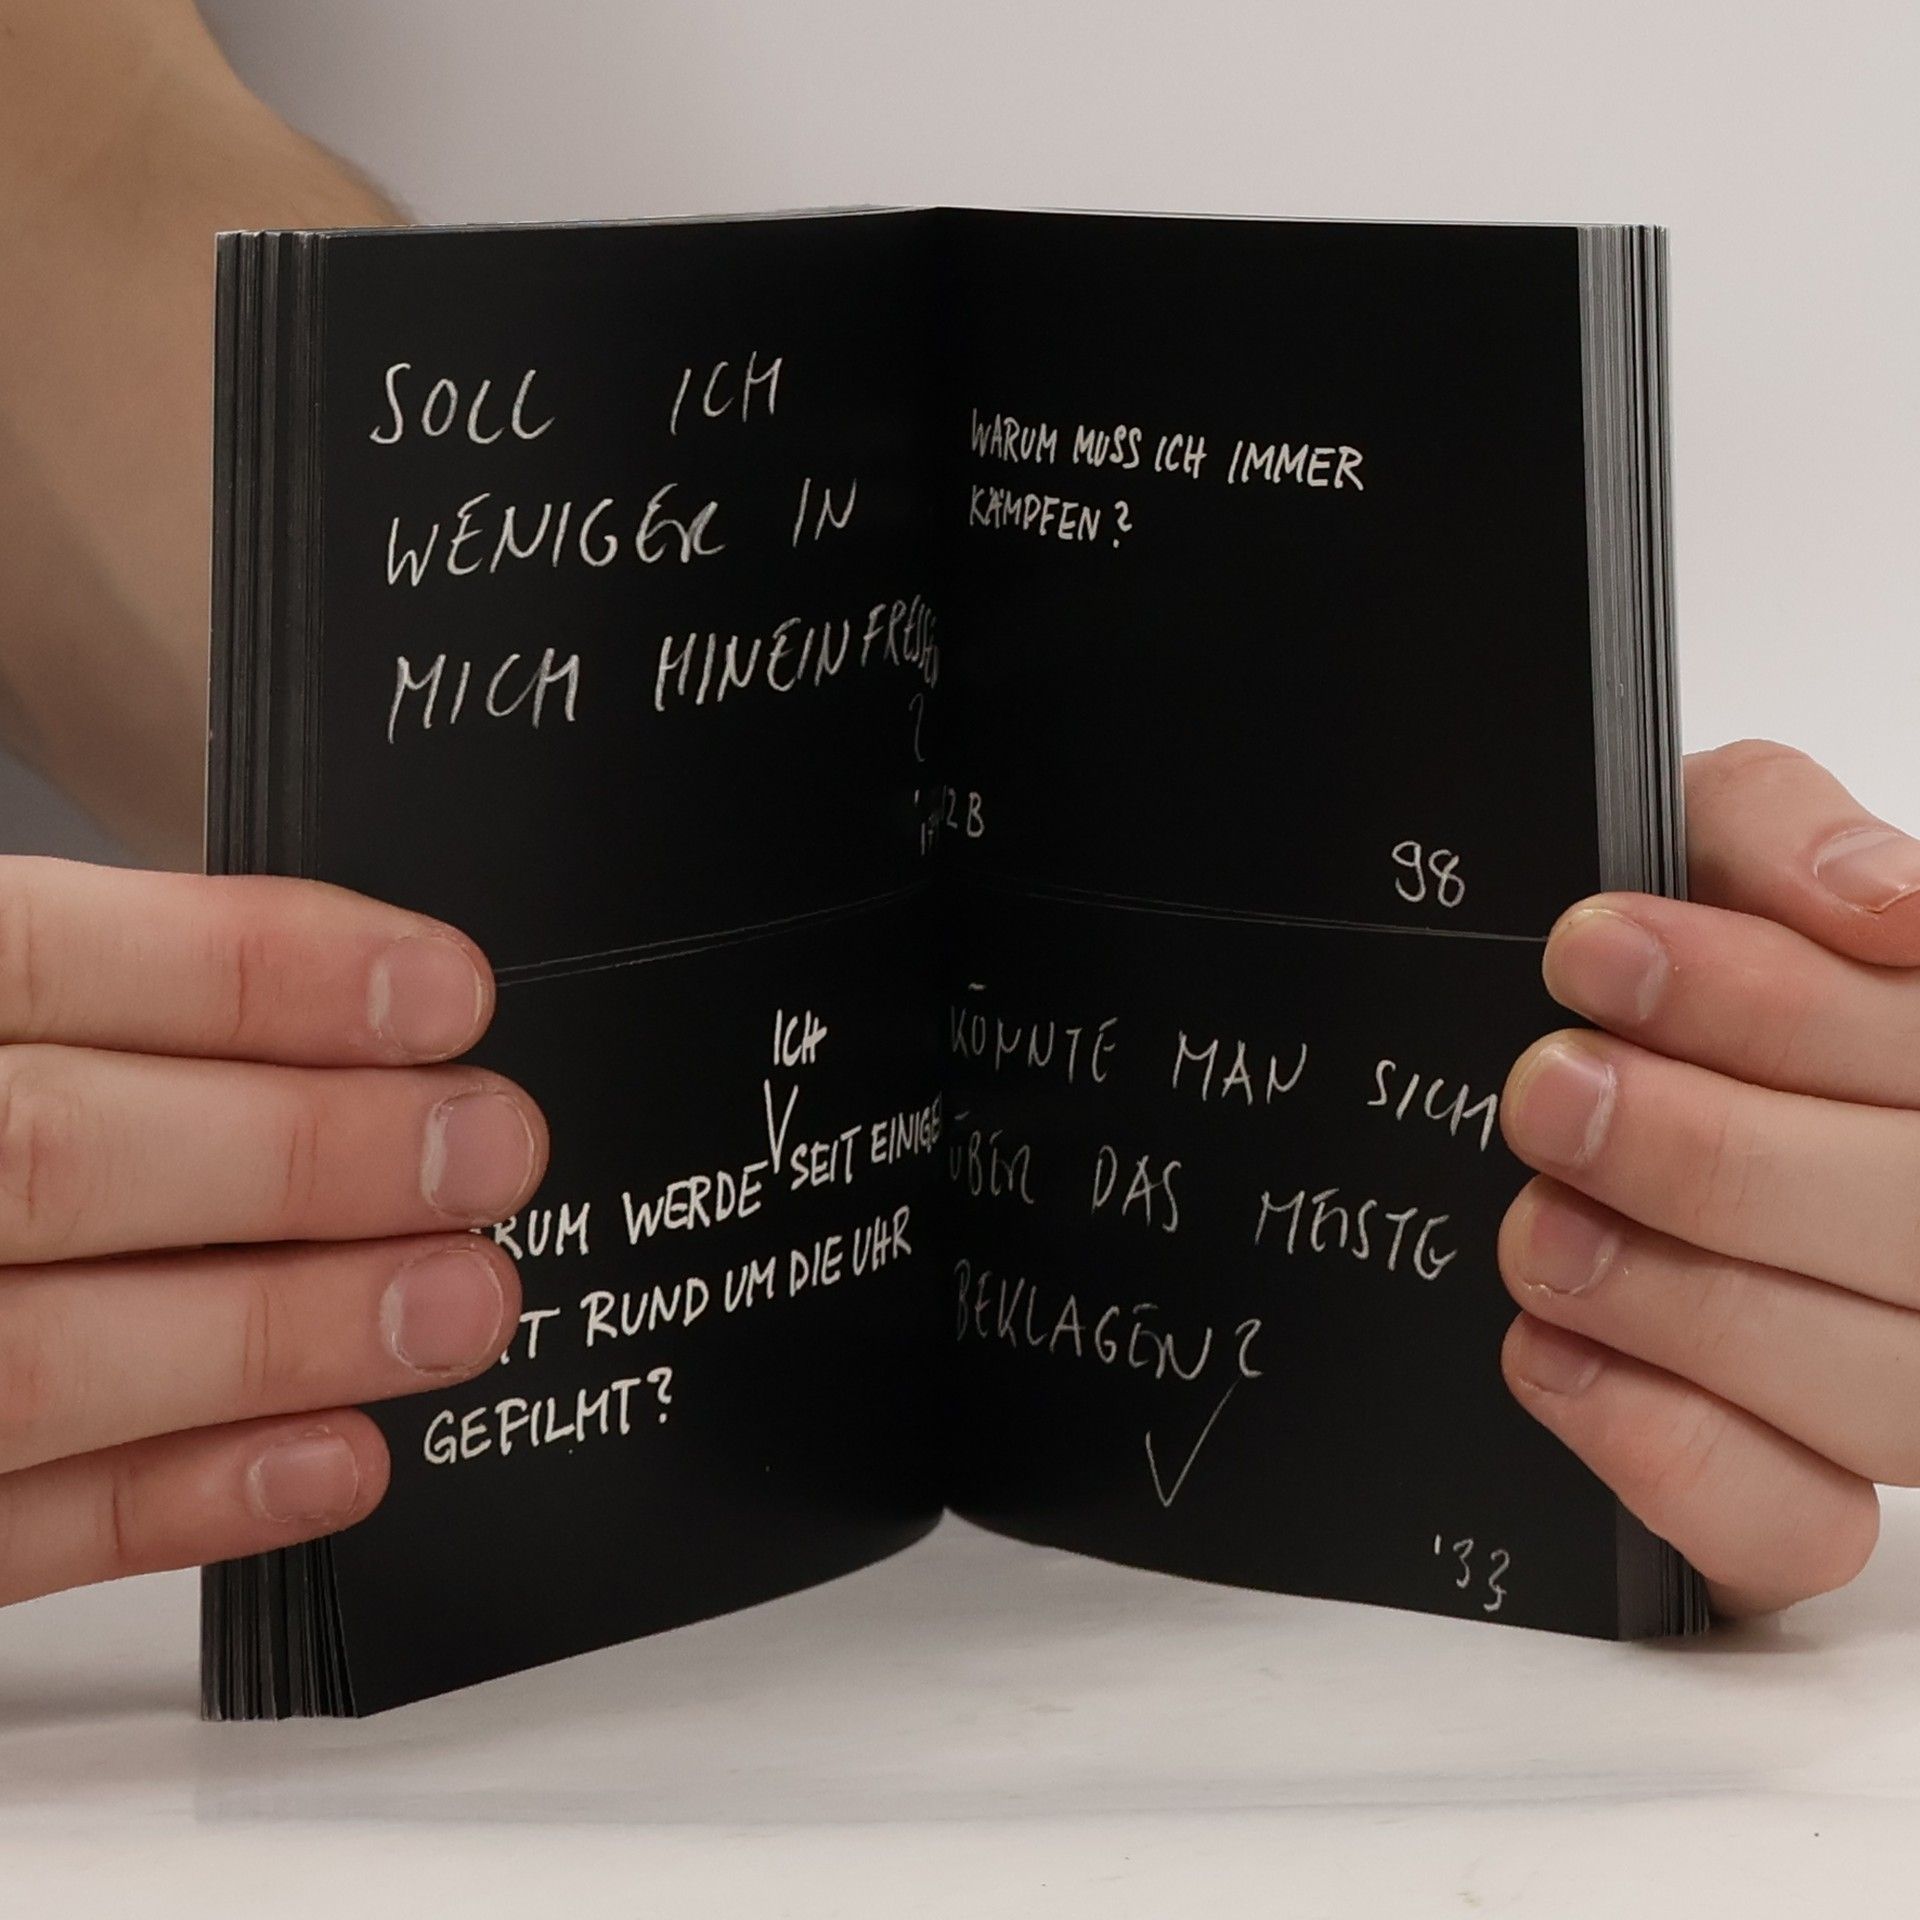 SOLL ICH
WENIGER IN
MICH HINEINFRESSEN
?
WARUM MUSS ICH IMMER
KÄMPFEN?
98
ICH
WERDE SEIT EINIGE
RUND UM DIE UHR
GEFILMT?
KÖNNTE MAN SICH
ÜBER DAS MEISTE
BEKLAGEN?
'33